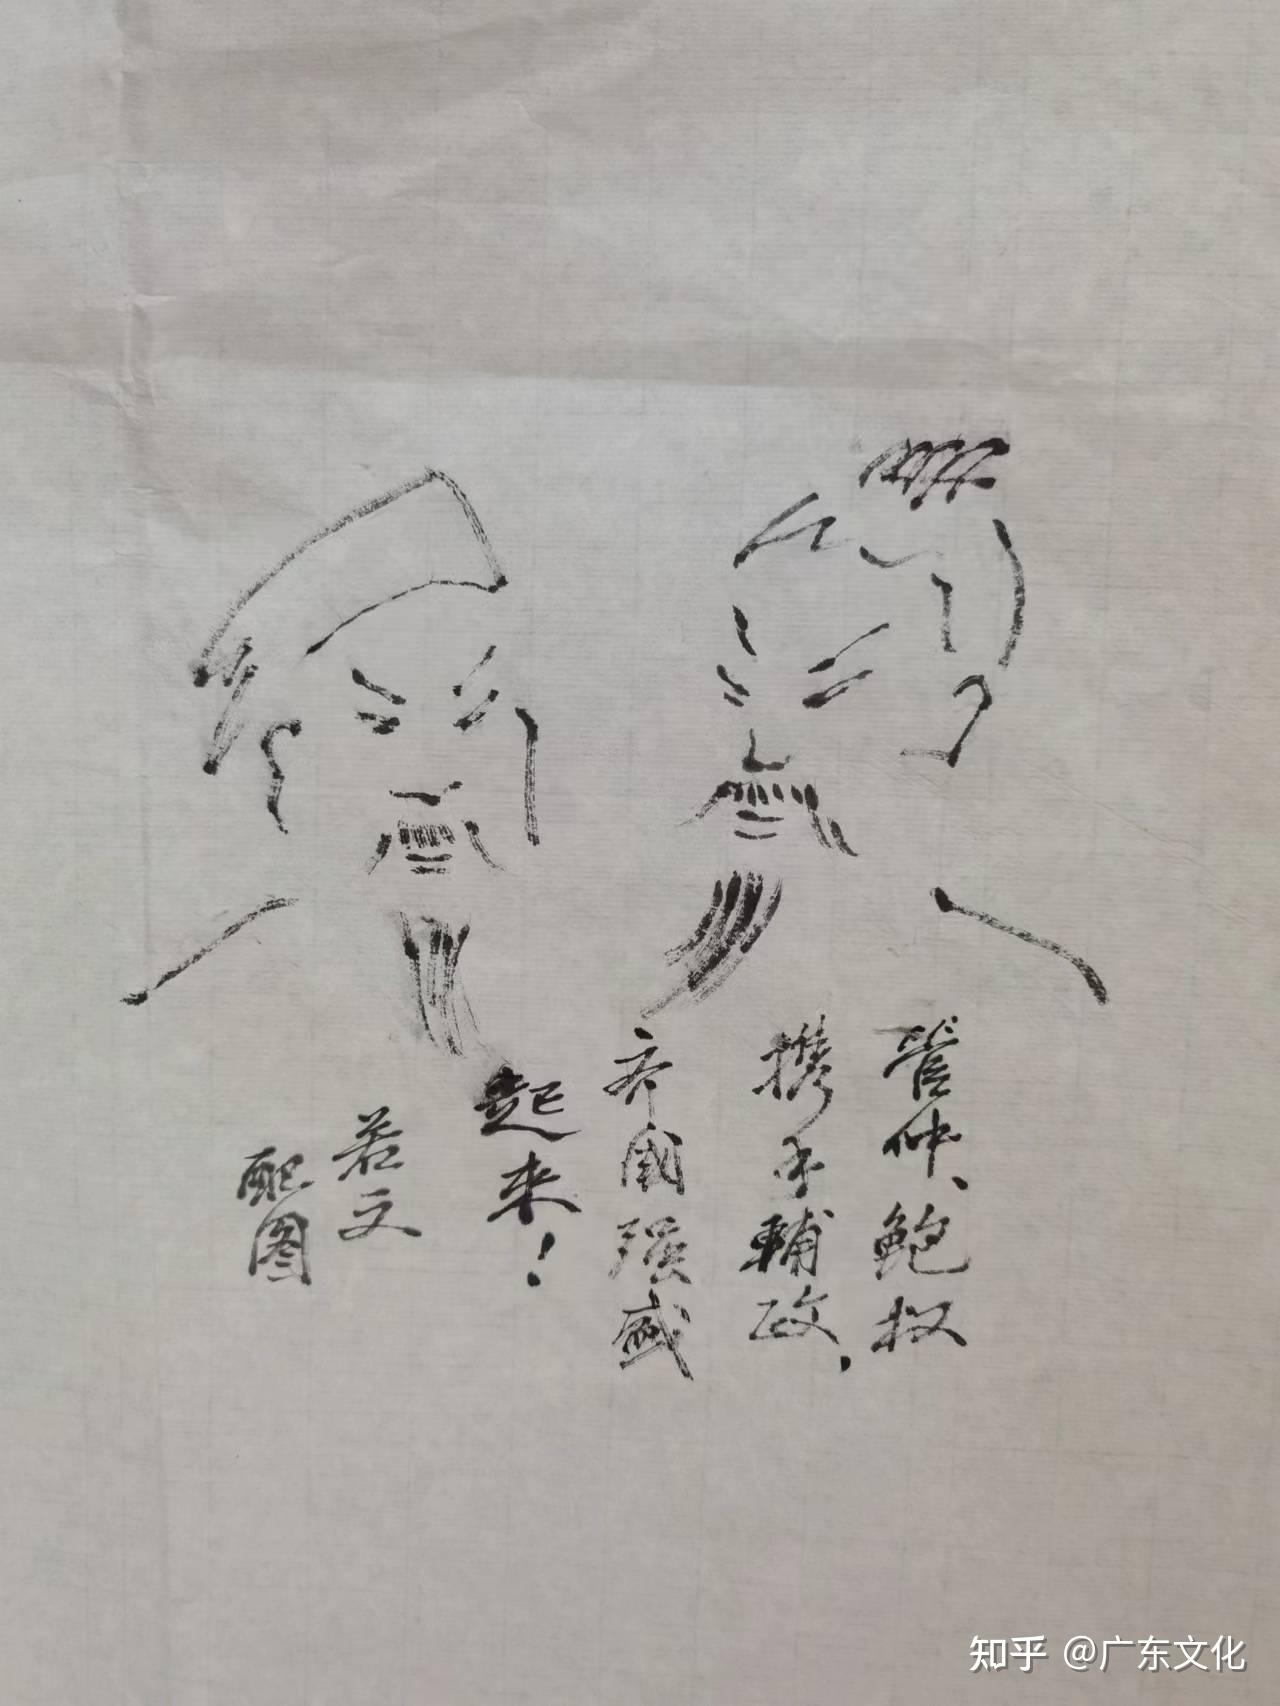 管仲、鲍叔
携手輔政，
齐国强盛
起来！
若文
配图
知乎 @广东文化